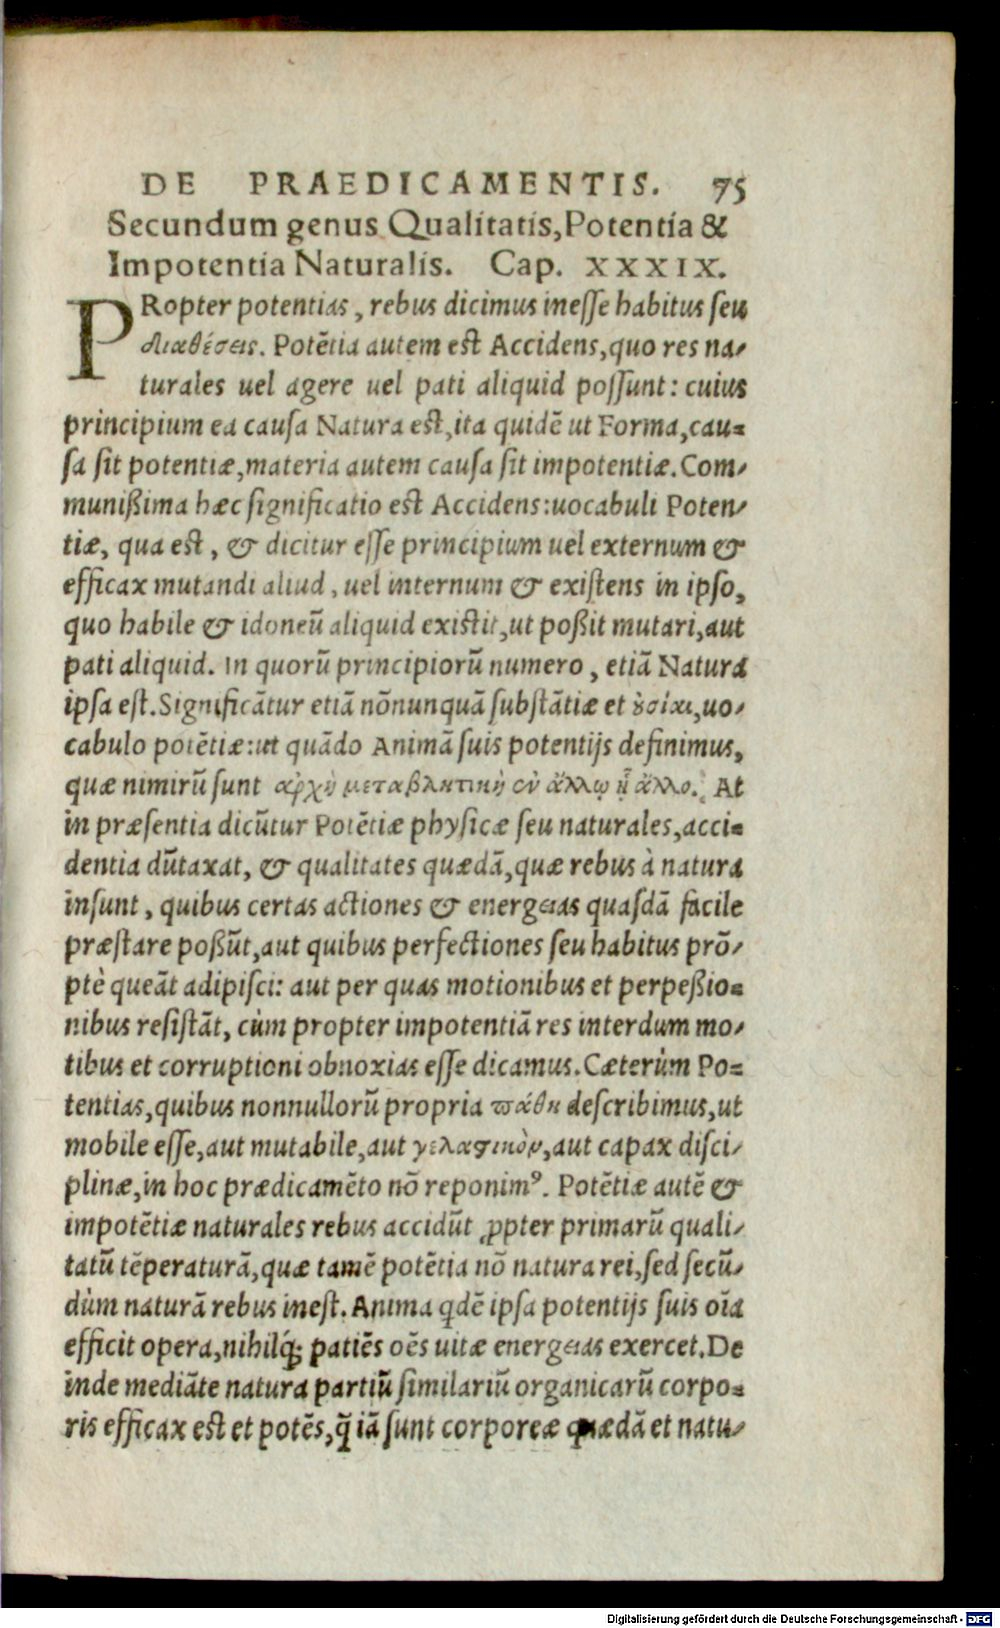 DE PRAEDICAMENTIS. 75
Secundum genus Qualitatis, Potentia &
Impotentia Naturalis. Cap. XXXIX.
PRopter potentias, rebus dicimus inesse habitus seu
διαθέσεις. Potẽtia autem est Accidens, quo res na-
turales uel agere uel pati aliquid possunt: cuius
principium ea causa Natura est, ita quidẽ ut Forma, cau-
sa sit potentiæ, materia autem causa sit impotentiæ. Com-
munißima hæc significatio est Accidens: uocabuli Poten-
tiæ, qua est, & dicitur esse principium uel externum &
efficax mutandi aliud, uel internum & existens in ipso,
quo habile & idoneũ aliquid existit, ut poßit mutari, aut
pati aliquid. In quorũ principiorũ numero, etiã Natura
ipsa est. Significãtur etiã nõnunquã substãtiæ et ȣ̓σίαι, uo-
cabulo potẽtiæ: ut quãdo Animã suis potentijs definimus,
quæ nimirũ sunt ἀρχὴ μεταβλητικὴ ἐν ἄλλῳ ᾗ ἄλλο. At
in præsentia dicũtur Potẽtiæ physicæ seu naturales, acci-
dentia dũtaxat, & qualitates quædã, quæ rebus à natura
insunt, quibus certas actiones & energeias quasdã facile
præstare poßũt, aut quibus perfectiones seu habitus prõ-
ptè queãt adipisci: aut per quas motionibus et perpeßio-
nibus resistãt, cùm propter impotentiã res interdum mo-
tibus et corruptioni obnoxias esse dicamus. Cæterùm Po-
tentias, quibus nonnullorũ propria πάθη describimus, ut
mobile esse, aut mutabile, aut γελαστικὸν, aut capax disci-
plinæ, in hoc prædicamẽto nõ reponimꝰ. Potẽtiæ autẽ &
impotẽtiæ naturales rebus accidũt ꝓpter primarũ quali-
tatũ tẽperaturã, quæ tamẽ potẽtia nõ natura rei, sed secũ-
dùm naturã rebus inest. Anima qdẽ ipsa potentijs suis oĩa
efficit opera, nihilq́; patiẽs oẽs uitæ energeias exercet. De
inde mediãte natura partiũ similariũ organicarũ corpo-
ris efficax est et potẽs, q̃ iã sunt corporeæ quædã et natu-
Digitalisierung gefördert durch die Deutsche Forschungsgemeinschaft - DFG